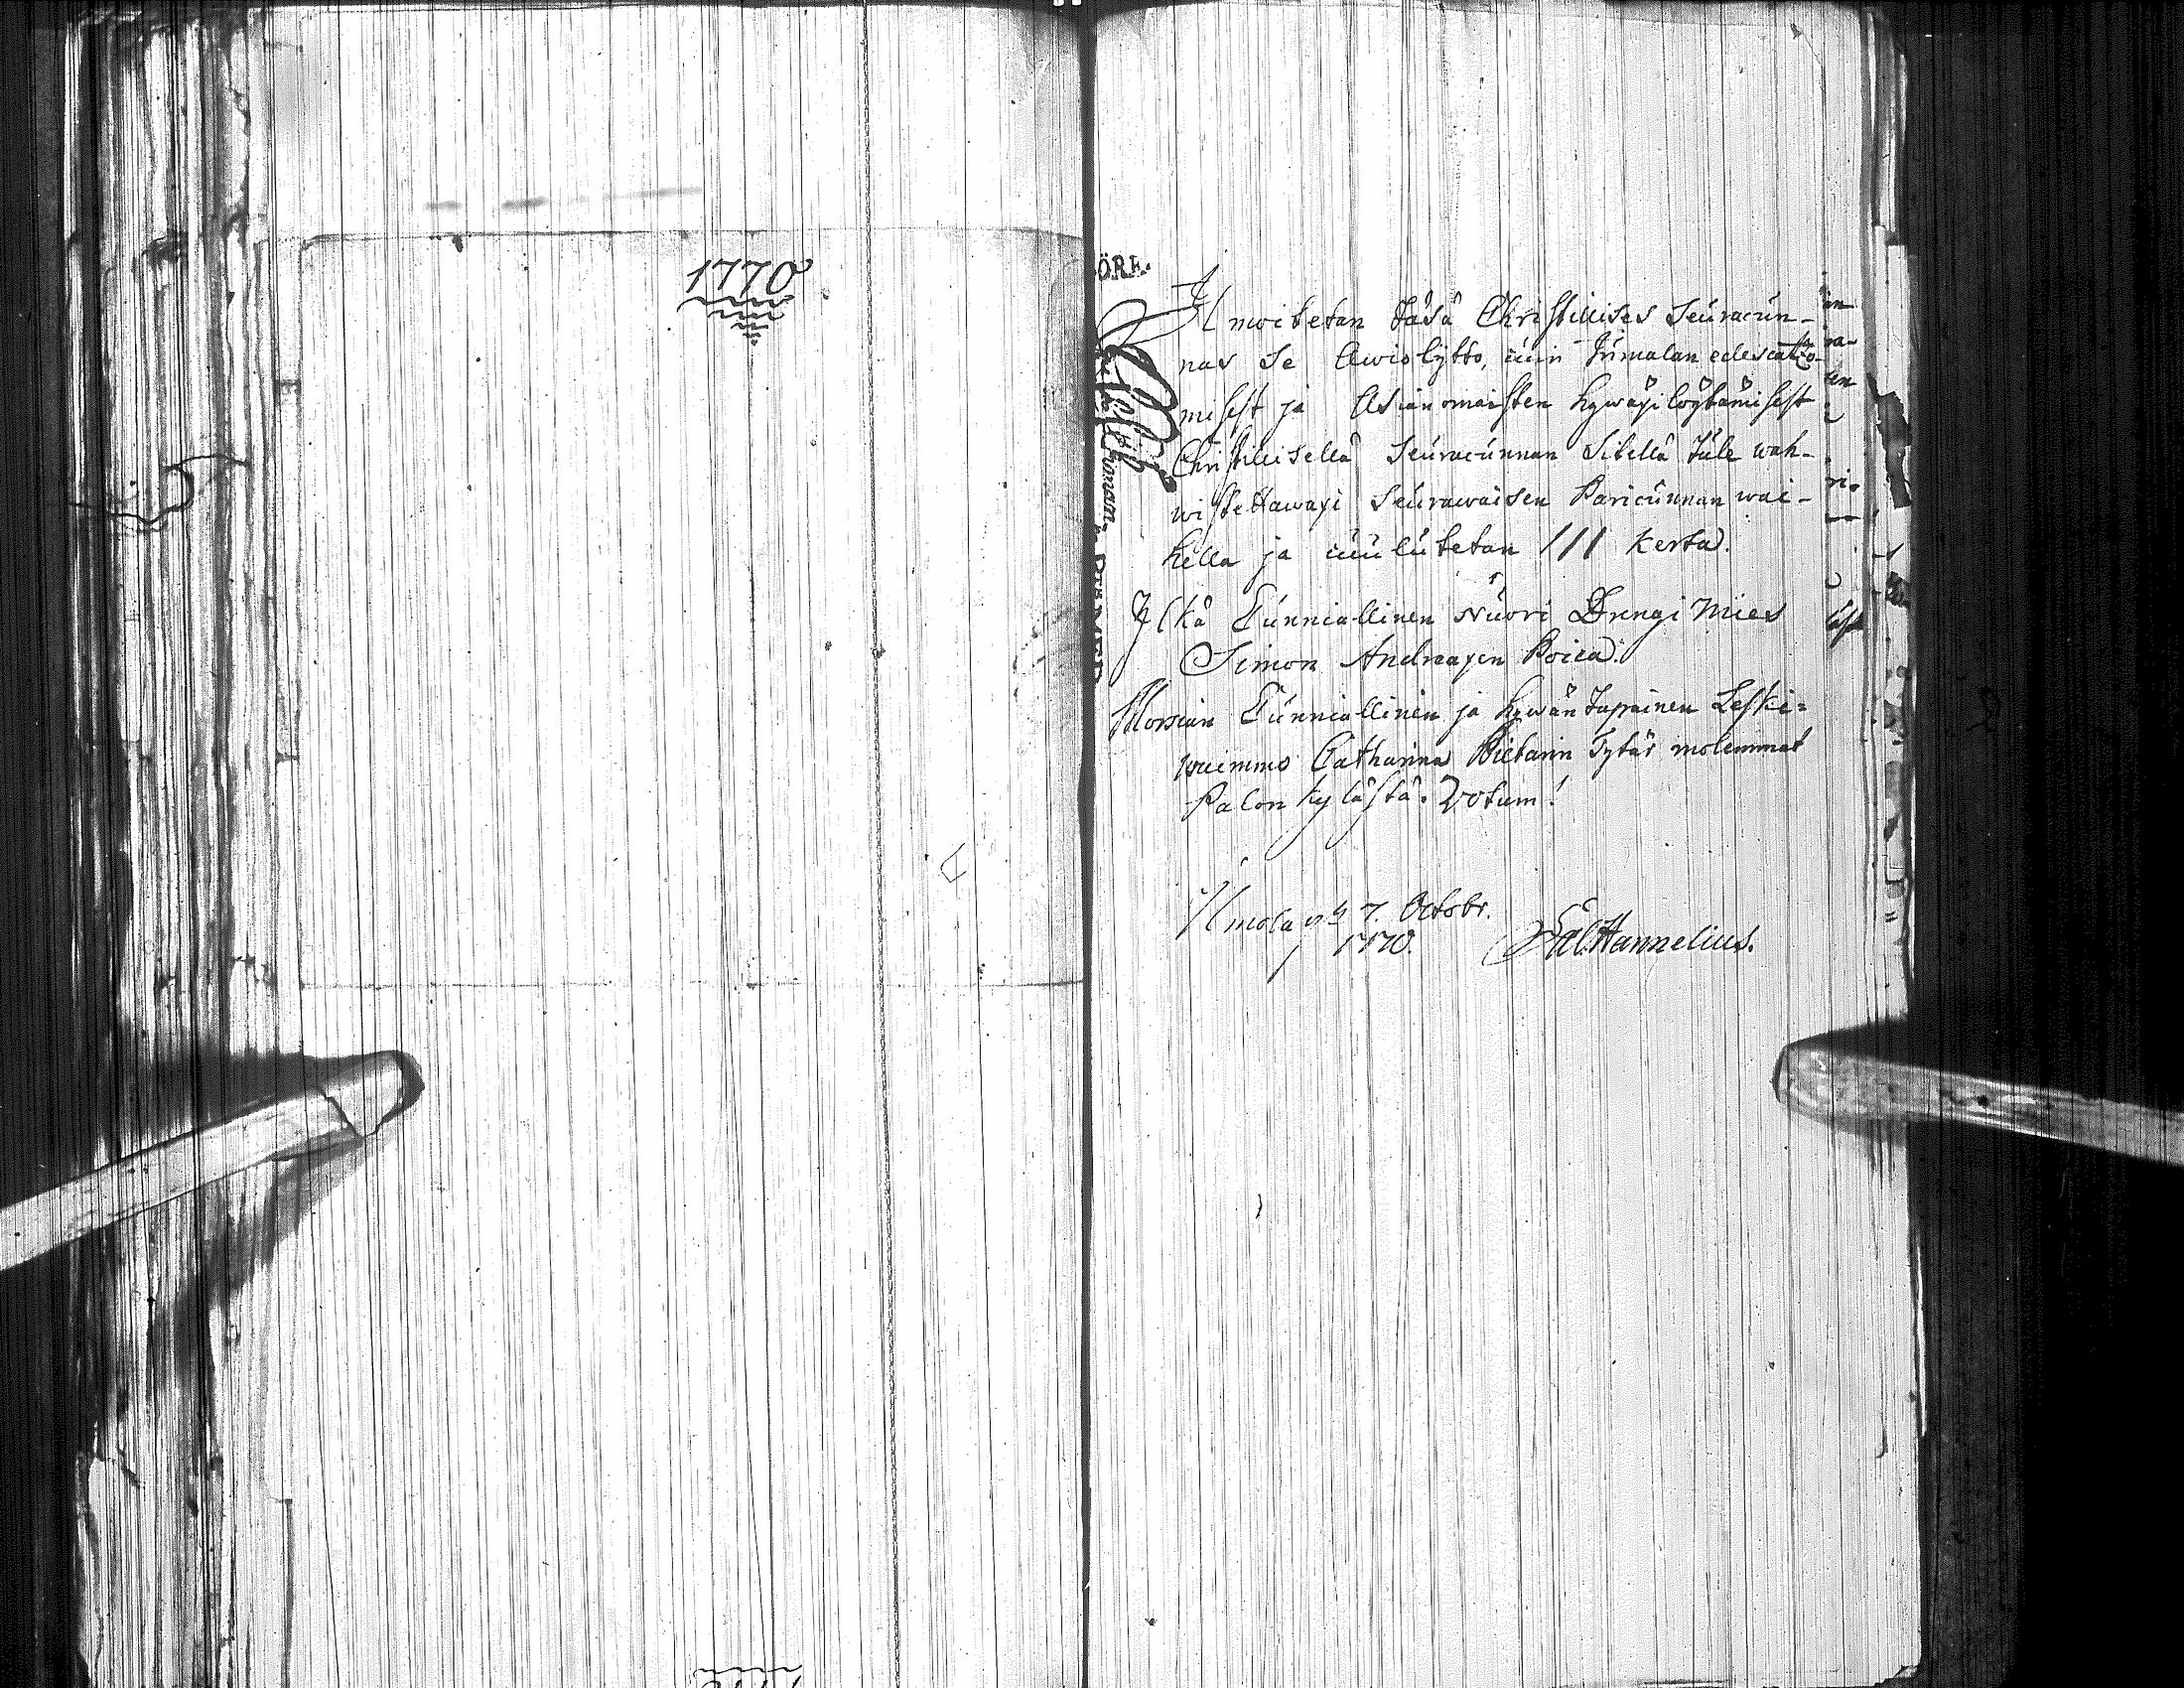 1770
ÖRE.
Ilmoitetan täsä Christillises Seuracun-
nas se Awiolijtto, cuin Jumalan edescatzo-
misest ja Asianomaisten hywäxi löytämisest
Christillisellä Seuracunnan Sitellä tule wah-
wistettawaxi Seurawaisen Paricunnan wai-
hella ja cuulutetan III kerta.
Ylkä Cunniallinen Nuori Drengi Mies
Simon Andreaxen Poica.
Morsian Cunniallinen ja hywäntapainen Leski-
waimmo Catharina Pietarin Tytär molemmat
Palon kylästä. Votum!
Ilmola 7. Octobr.
1770.
Sal. Hannelius.